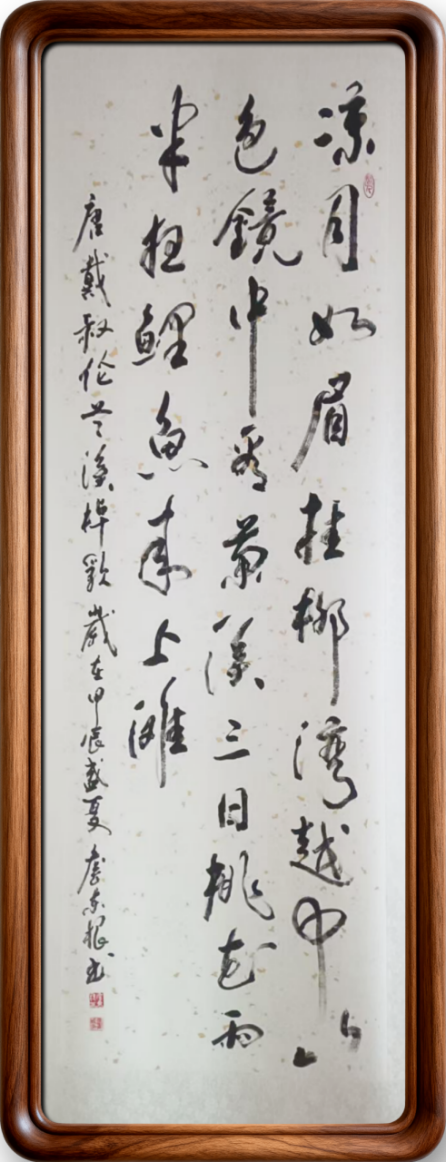 凉月如眉挂柳湾越中山
色镜中看兰溪三日桃花雨
半夜鲤鱼来上滩
唐戴叔伦兰溪棹歌岁在甲辰盛夏 东根书